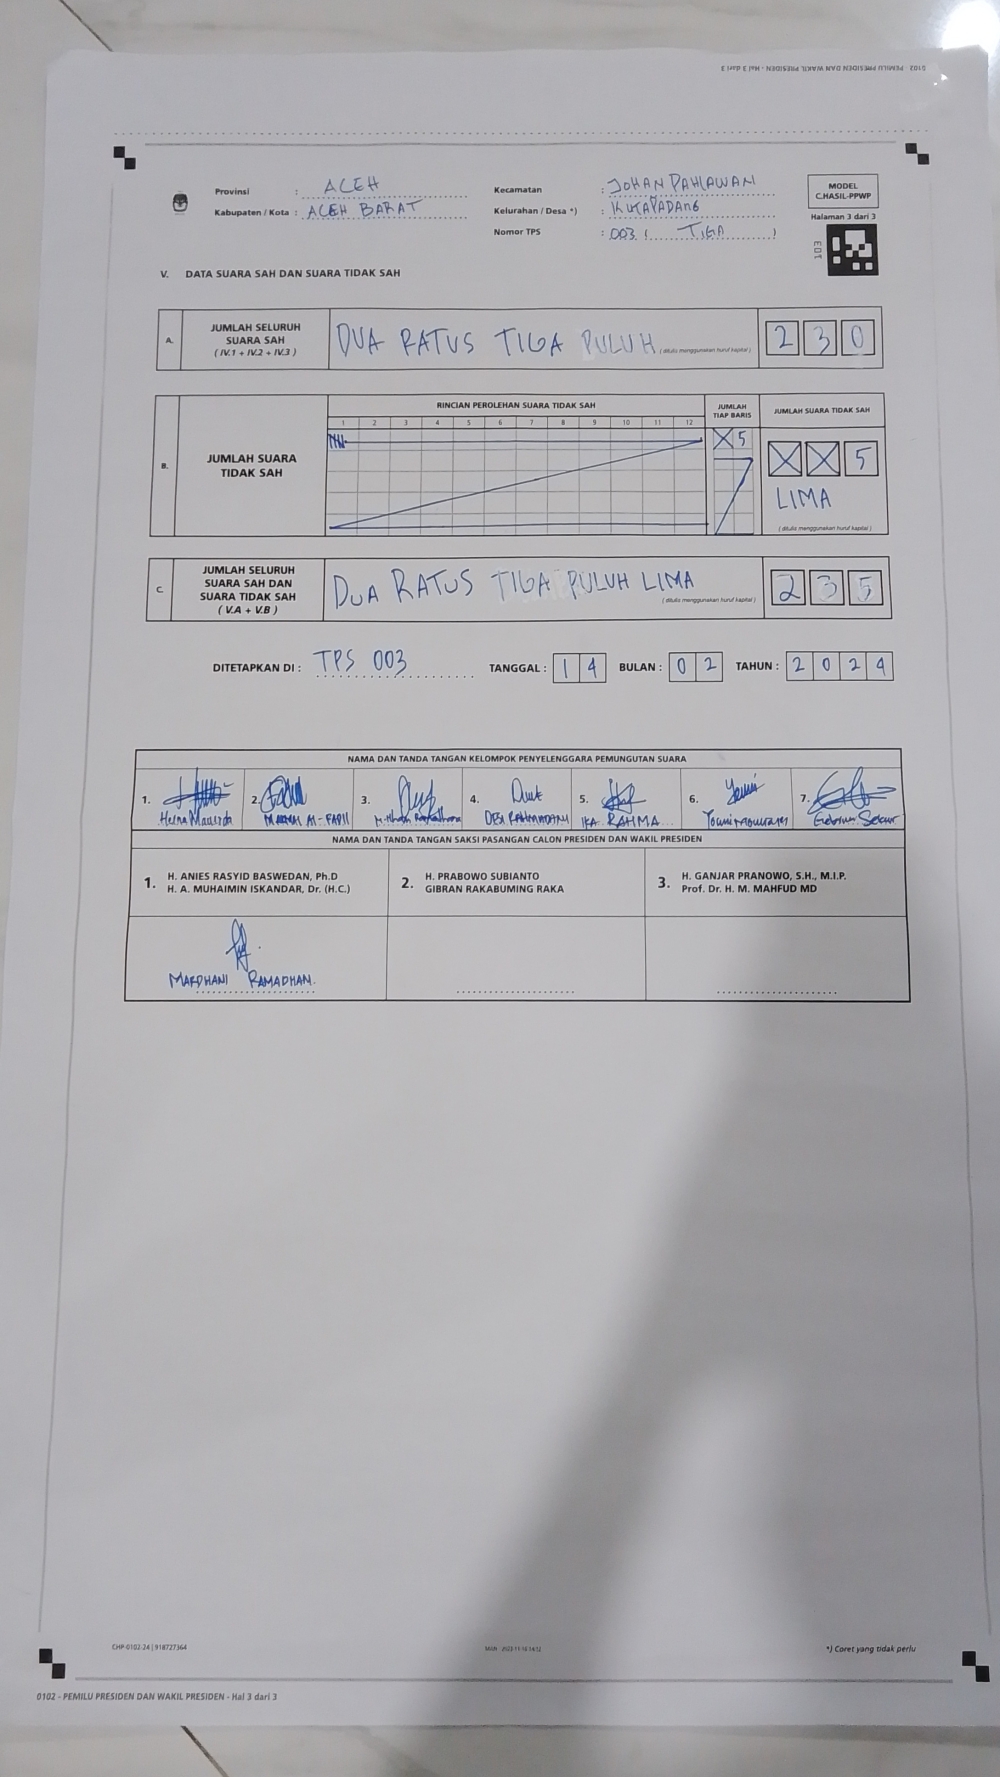 0102 - PEMILU PRESIDEN DAN WAKIL PRESIDEN - Hal 3 dari 3
Provinsi : ACEH
Kabupaten / Kota : ACEH BARAT
Kecamatan : JOHAN PAHLAWAN
Kelurahan / Desa *) : KUTAPADANG
Nomor TPS : 003 ( TIGA )
MODEL
C.HASIL-PPWP
Halaman 3 dari 3
V. DATA SUARA SAH DAN SUARA TIDAK SAH
A. JUMLAH SELURUH SUARA SAH ( IV.1 + IV.2 + IV.3 )
DUA RATUS TIGA PULUH (ditulis menggunakan huruf kapital) 2 3 0
RINCIAN PEROLEHAN SUARA TIDAK SAH
JUMLAH TIAP BARIS
JUMLAH SUARA TIDAK SAH
1 2 3 4 5 6 7 8 9 10 11 12
B. JUMLAH SUARA TIDAK SAH
X 5
X X 5
LIMA
(ditulis menggunakan huruf kapital)
C. JUMLAH SELURUH SUARA SAH DAN SUARA TIDAK SAH ( V.A + V.B )
DUA RATUS TIGA PULUH LIMA (ditulis menggunakan huruf kapital) 2 3 5
DITETAPKAN DI : TPS 003 TANGGAL : 1 4 BULAN : 0 2 TAHUN : 2 0 2 4
NAMA DAN TANDA TANGAN KELOMPOK PENYELENGGARA PEMUNGUTAN SUARA
1. 2. 3. 4. 5. 6. 7.
DESI RAHMADANI IKA RAHMA
NAMA DAN TANDA TANGAN SAKSI PASANGAN CALON PRESIDEN DAN WAKIL PRESIDEN
1. H. ANIES RASYID BASWEDAN, Ph.D
H. A. MUHAIMIN ISKANDAR, Dr. (H.C.)
2. H. PRABOWO SUBIANTO
GIBRAN RAKABUMING RAKA
3. H. GANJAR PRANOWO, S.H., M.I.P.
Prof. Dr. H. M. MAHFUD MD
MARDHANI RAMADHAN.
CHP-0102-24 | 918727364
*) Coret yang tidak perlu
0102 - PEMILU PRESIDEN DAN WAKIL PRESIDEN - Hal 3 dari 3